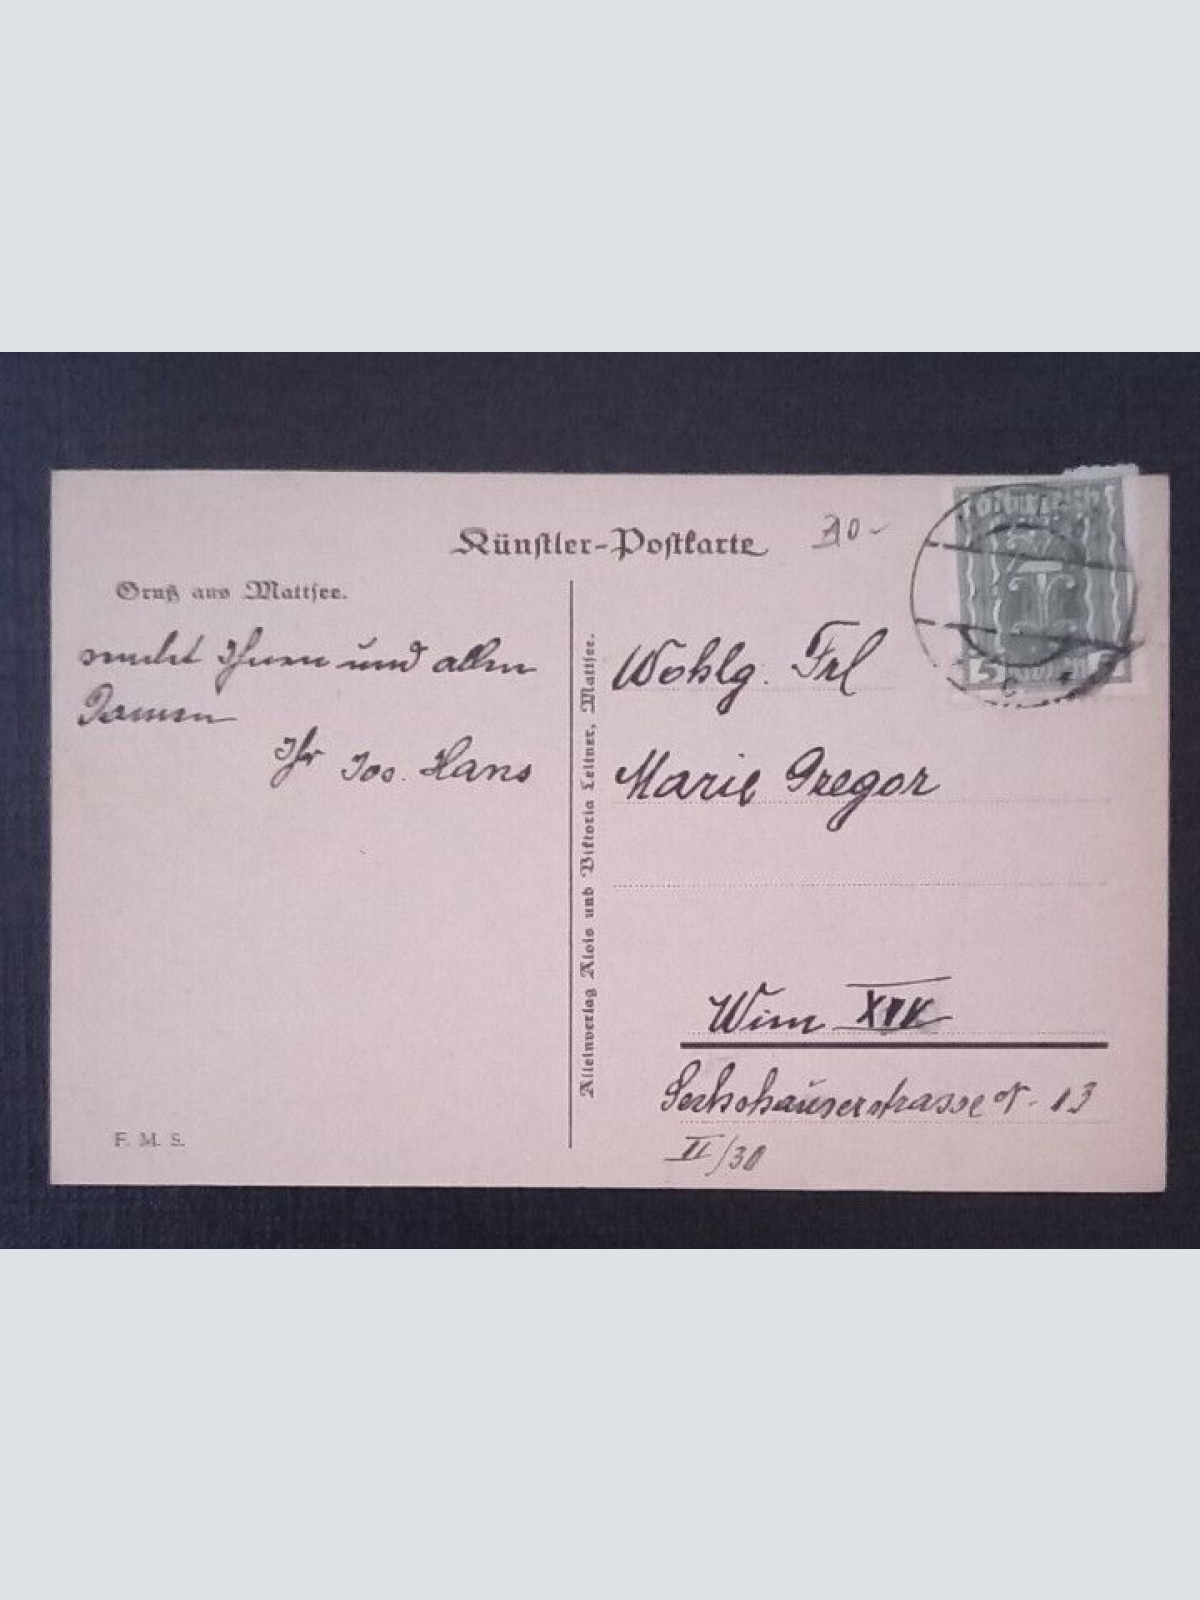 Künstler-Postkarte
Gruß aus Mattsee.
sendet Ihnen und allen
Damen
Ihr Jos. Hans
Alleinverlag Alois und Viktoria Leitner, Mattsee.
Wohlg. Frl
Marie Gregor
Wien XIV
Sechshauserstrasse N. 13
II/30
F. M. S.
5